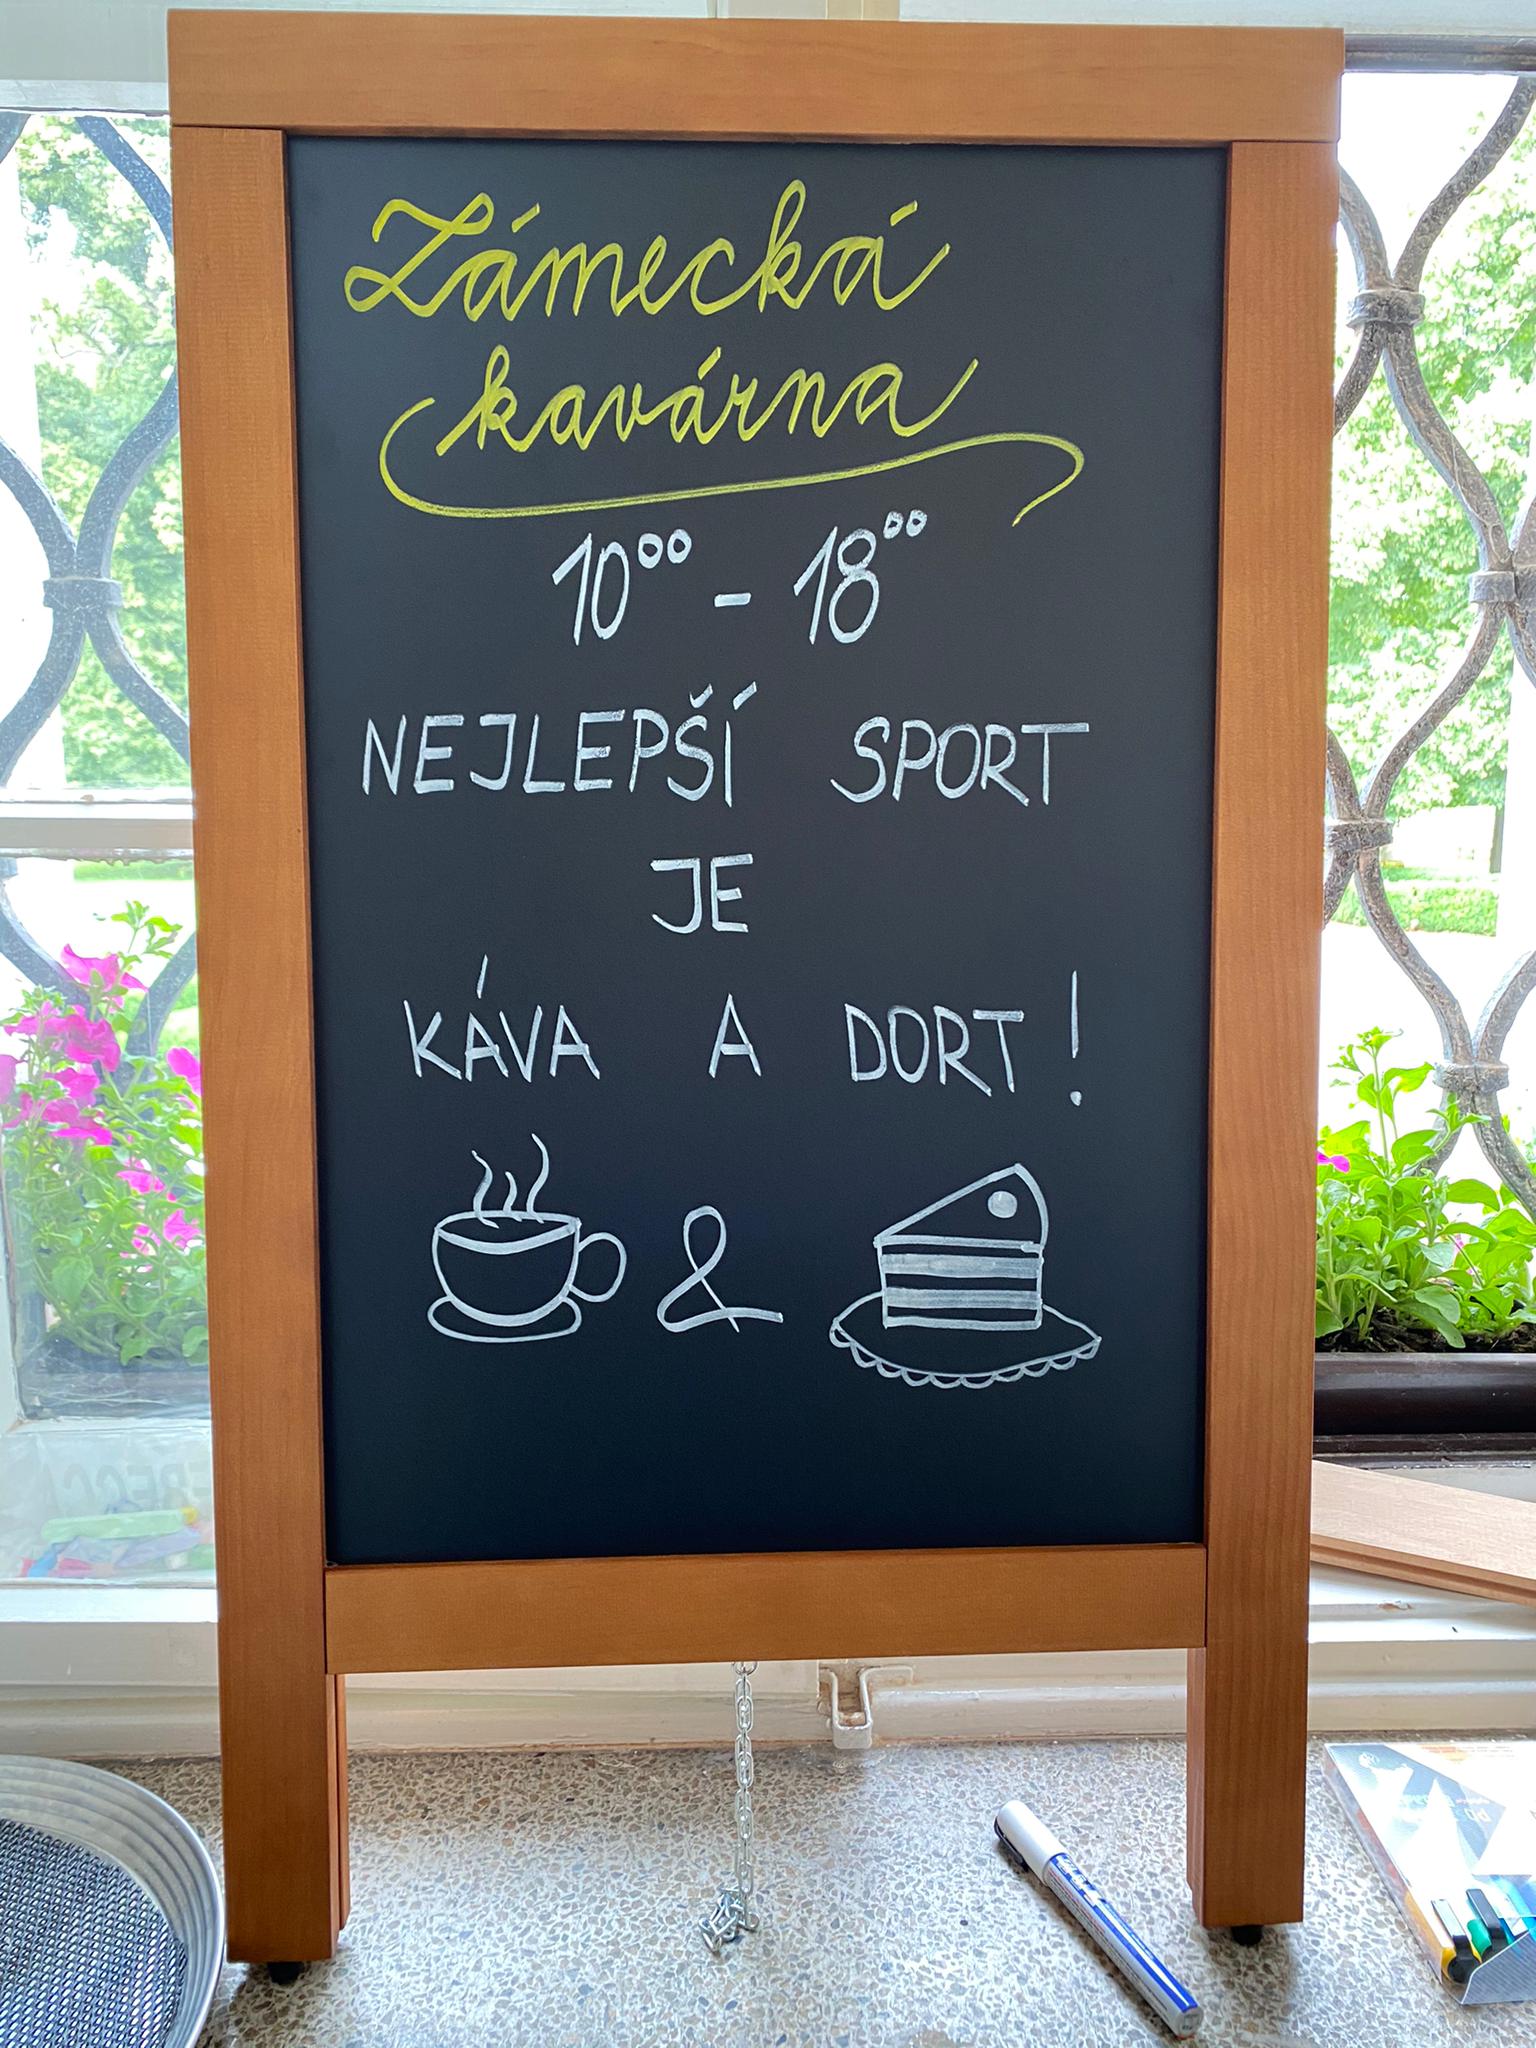 Zámecká
kavárna
10⁰⁰ - 18⁰⁰
NEJLEPŠÍ SPORT
JE
KÁVA A DORT!
&